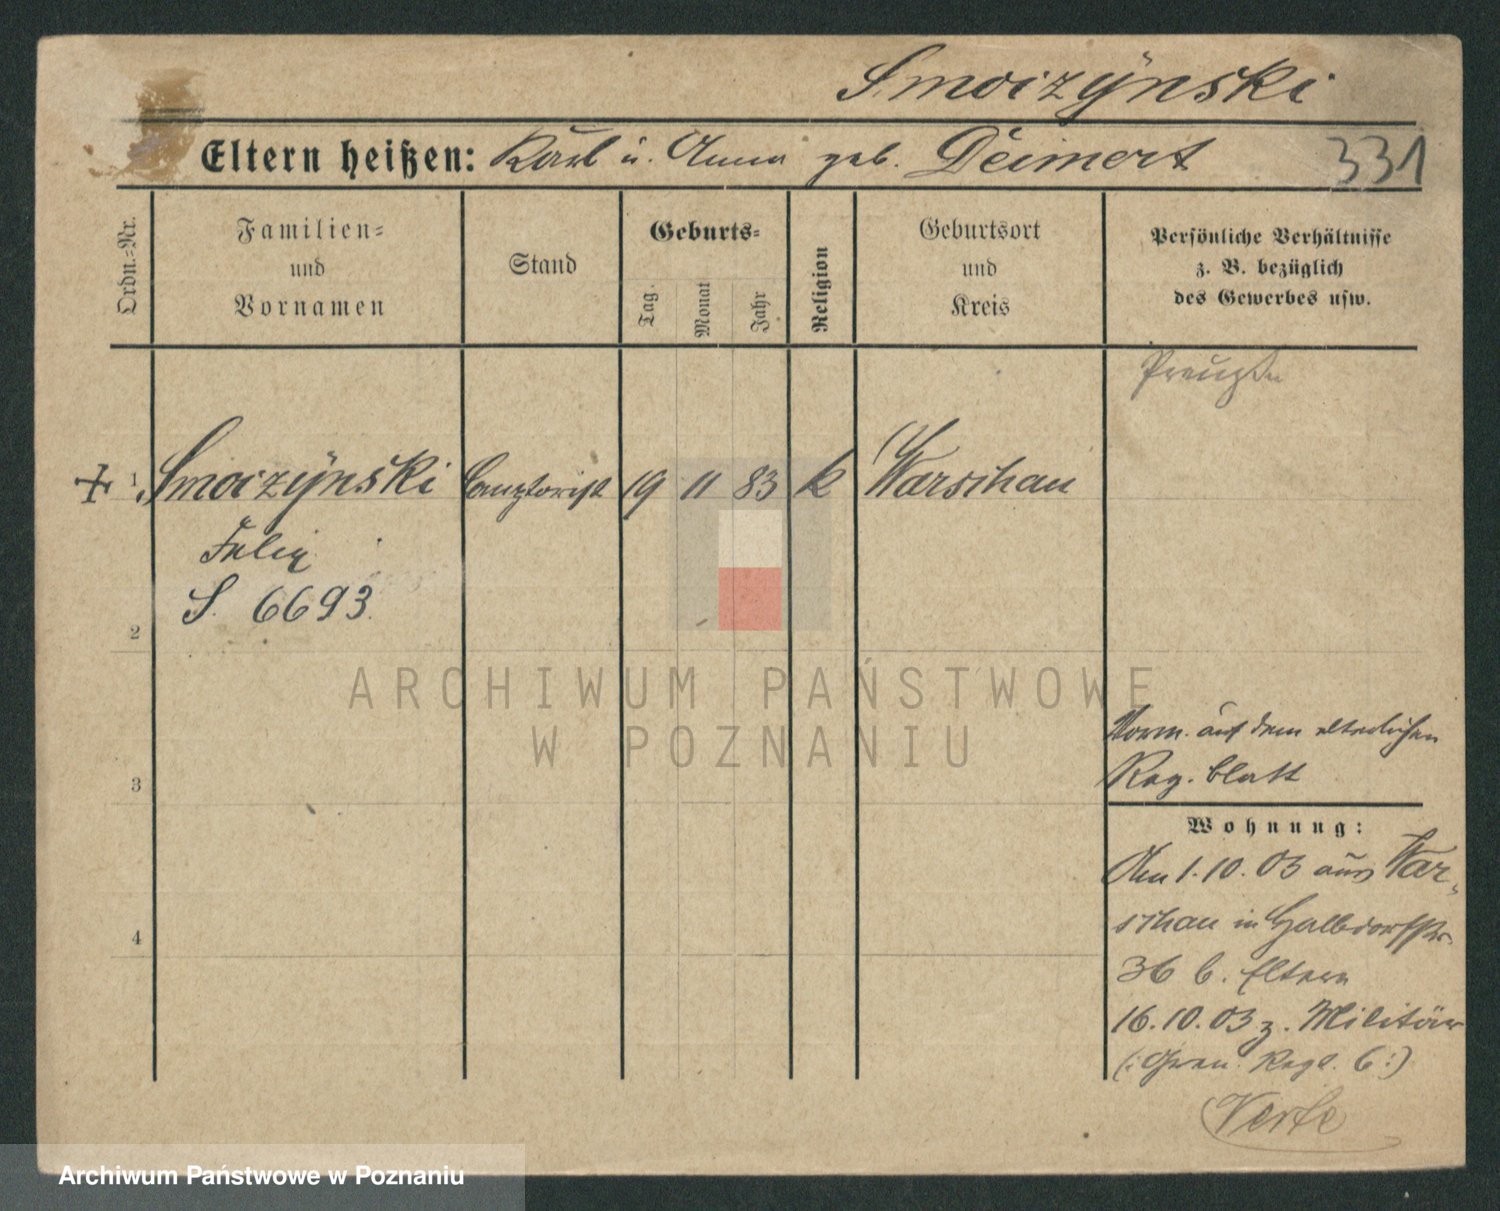 Smoizÿnski
Eltern heißen: Karl u. Anna geb. Deimert
331
Ordn.-Nr.
Familien-
und
Vornamen
Stand
Geburts-
Tag.
Monat
Jahr
Religion
Geburtsort
und
Kreis
Persönliche Verhältnisse
z. B. bezüglich
des Gewerbes usw.
Preuße
1 Smoizÿnski Comptorist 19 11 83 k Warschau
Felix
S. 6693.
2
ARCHIWUM PAŃSTWOWE
W POZNANIU
Vorm. auf dem elterlichen
Reg. blatt
3
Wohnung:
Am 1.10.03 aus War-
schau in Halbdorfstr.
36 b. Eltern
4
16.10.03 z. Militär
(: Gren. Regt. 6 :)
Verte
Archiwum Państwowe w Poznaniu